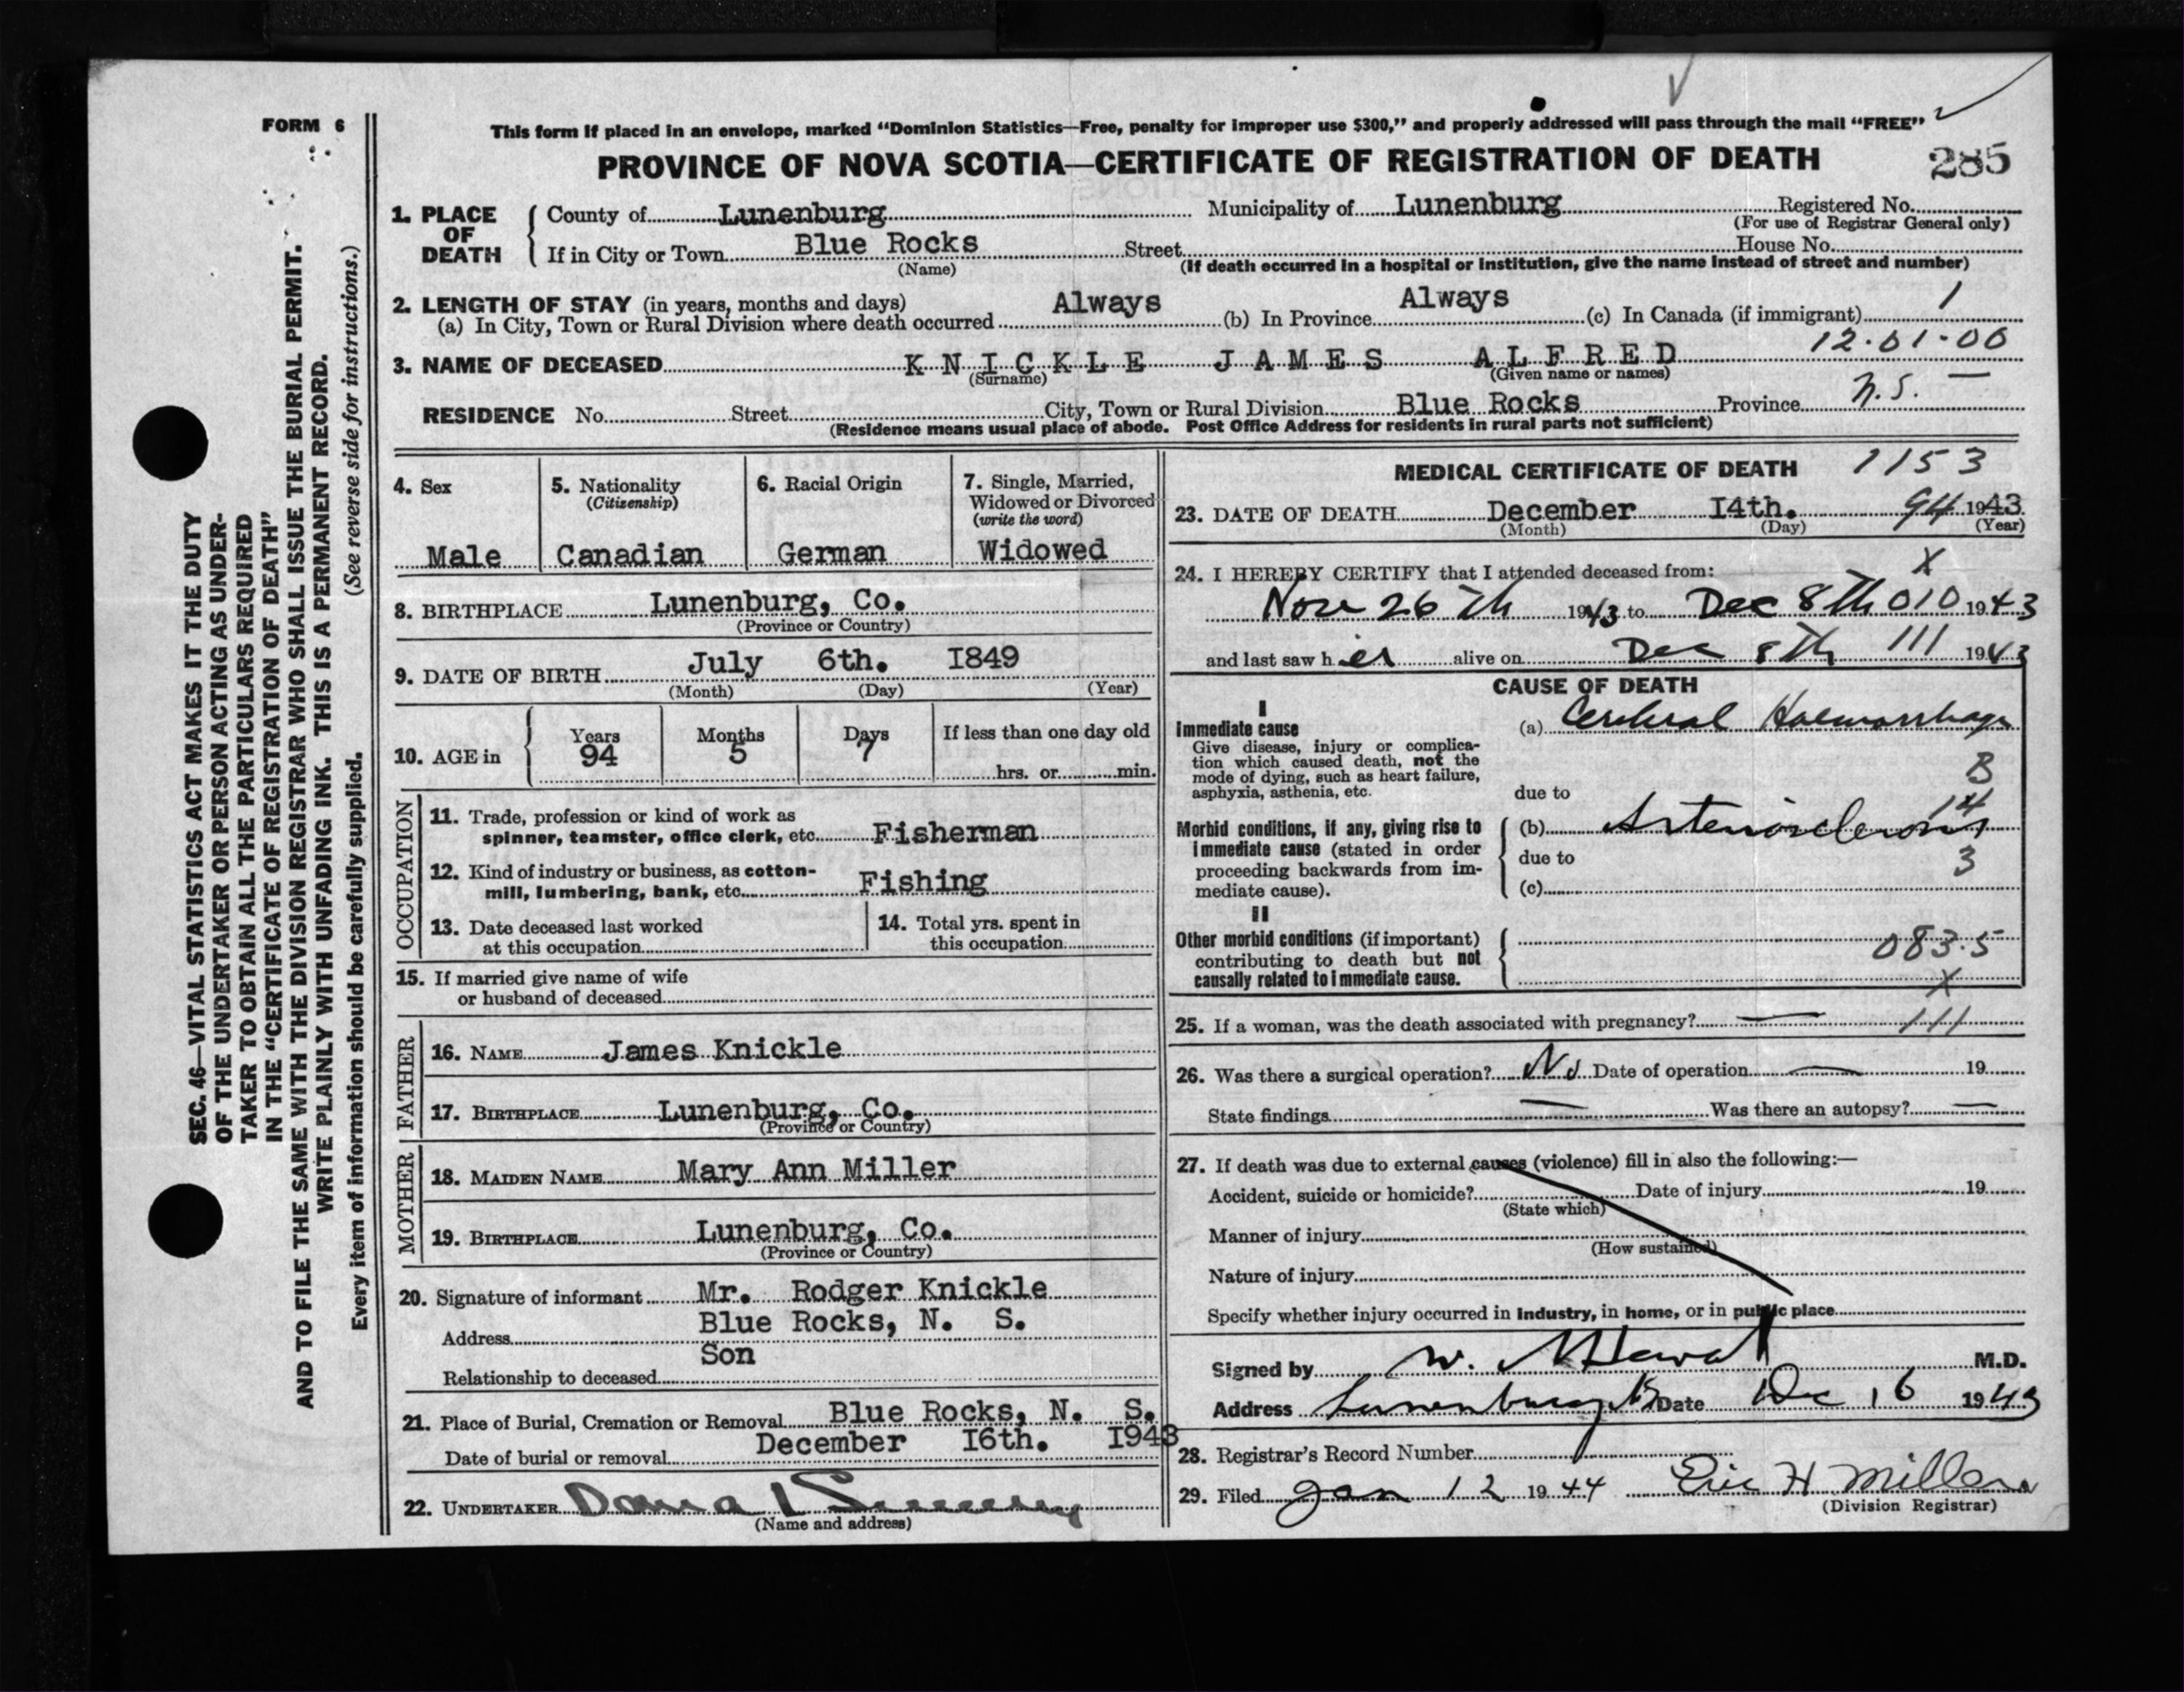 FORM 6
This form if placed in an envelope, marked “Dominion Statistics—Free, penalty for improper use $300,” and properly addressed will pass through the mail “FREE”
PROVINCE OF NOVA SCOTIA—CERTIFICATE OF REGISTRATION OF DEATH
285
SEC. 46—VITAL STATISTICS ACT MAKES IT THE DUTY
OF THE UNDERTAKER OR PERSON ACTING AS UNDER-
TAKER TO OBTAIN ALL THE PARTICULARS REQUIRED
IN THE “CERTIFICATE OF REGISTRATION OF DEATH”
AND TO FILE THE SAME WITH THE DIVISION REGISTRAR WHO SHALL ISSUE THE BURIAL PERMIT.
WRITE PLAINLY WITH UNFADING INK. THIS IS A PERMANENT RECORD.
Every item of information should be carefully supplied. (See reverse side for instructions.)
1. PLACE OF DEATH
County of Lunenburg Municipality of Lunenburg Registered No.
(For use of Registrar General only)
If in City or Town Blue Rocks Street House No.
(Name) (If death occurred in a hospital or institution, give the name instead of street and number)
2. LENGTH OF STAY (in years, months and days)
(a) In City, Town or Rural Division where death occurred Always (b) In Province Always (c) In Canada (if immigrant) 1
12.01.00
3. NAME OF DECEASED KNICKLE JAMES ALFRED
(Surname) (Given name or names)
RESIDENCE No. Street City, Town or Rural Division Blue Rocks Province N.S. —
(Residence means usual place of abode. Post Office Address for residents in rural parts not sufficient)
4. Sex
Male
5. Nationality
(Citizenship)
Canadian
6. Racial Origin
German
7. Single, Married,
Widowed or Divorced
(write the word)
Widowed
8. BIRTHPLACE Lunenburg, Co.
(Province or Country)
9. DATE OF BIRTH July 6th. I849
(Month) (Day) (Year)
10. AGE in Years Months Days If less than one day old
94 5 7
hrs. or min.
OCCUPATION
11. Trade, profession or kind of work as
spinner, teamster, office clerk, etc. Fisherman
12. Kind of industry or business, as cotton-
mill, lumbering, bank, etc. Fishing
13. Date deceased last worked
at this occupation
14. Total yrs. spent in
this occupation
15. If married give name of wife
or husband of deceased
FATHER
16. NAME James Knickle
17. BIRTHPLACE Lunenburg, Co.
(Province or Country)
MOTHER
18. MAIDEN NAME Mary Ann Miller
19. BIRTHPLACE Lunenburg, Co.
(Province or Country)
20. Signature of informant Mr. Rodger Knickle
Address Blue Rocks, N. S.
Relationship to deceased Son
21. Place of Burial, Cremation or Removal Blue Rocks, N. S.
Date of burial or removal December I6th. I943
22. UNDERTAKER
(Name and address)
MEDICAL CERTIFICATE OF DEATH 1153
23. DATE OF DEATH December I4th. 94 1943
(Month) (Day) (Year)
24. I HEREBY CERTIFY that I attended deceased from: X
Nov 26th 1943 to Dec 8th 010 1943
and last saw h er alive on Dec 8th 111 1943
CAUSE OF DEATH
I
Immediate cause
Give disease, injury or complica-
tion which caused death, not the
mode of dying, such as heart failure,
asphyxia, asthenia, etc.
(a) Cerebral Haemorrhage
B
due to
14
Morbid conditions, if any, giving rise to
immediate cause (stated in order
proceeding backwards from im-
mediate cause).
(b) Arteriosclerosis
due to
3
(c)
II
Other morbid conditions (if important)
contributing to death but not
causally related to immediate cause.
083.5
X
25. If a woman, was the death associated with pregnancy? — 111
26. Was there a surgical operation? No Date of operation — 19
State findings — Was there an autopsy? —
27. If death was due to external causes (violence) fill in also the following:—
Accident, suicide or homicide? Date of injury 19
(State which)
Manner of injury
(How sustained)
Nature of injury
Specify whether injury occurred in industry, in home, or in public place
Signed by W. M.D.
Address Lunenburg Date Dec 16 1943
28. Registrar's Record Number
29. Filed Jan 12 1944 Eric H Miller
(Division Registrar)